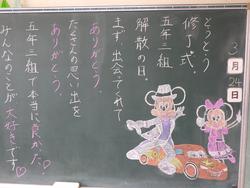 とうとう
修了式。
五年三組
解散の日。
まず、出会ってくれて
ありがとう。
たくさんの思い出を
ありがとう。
五年三組で本当に良かった♡
みんなのことが大好きです♡
3月24日